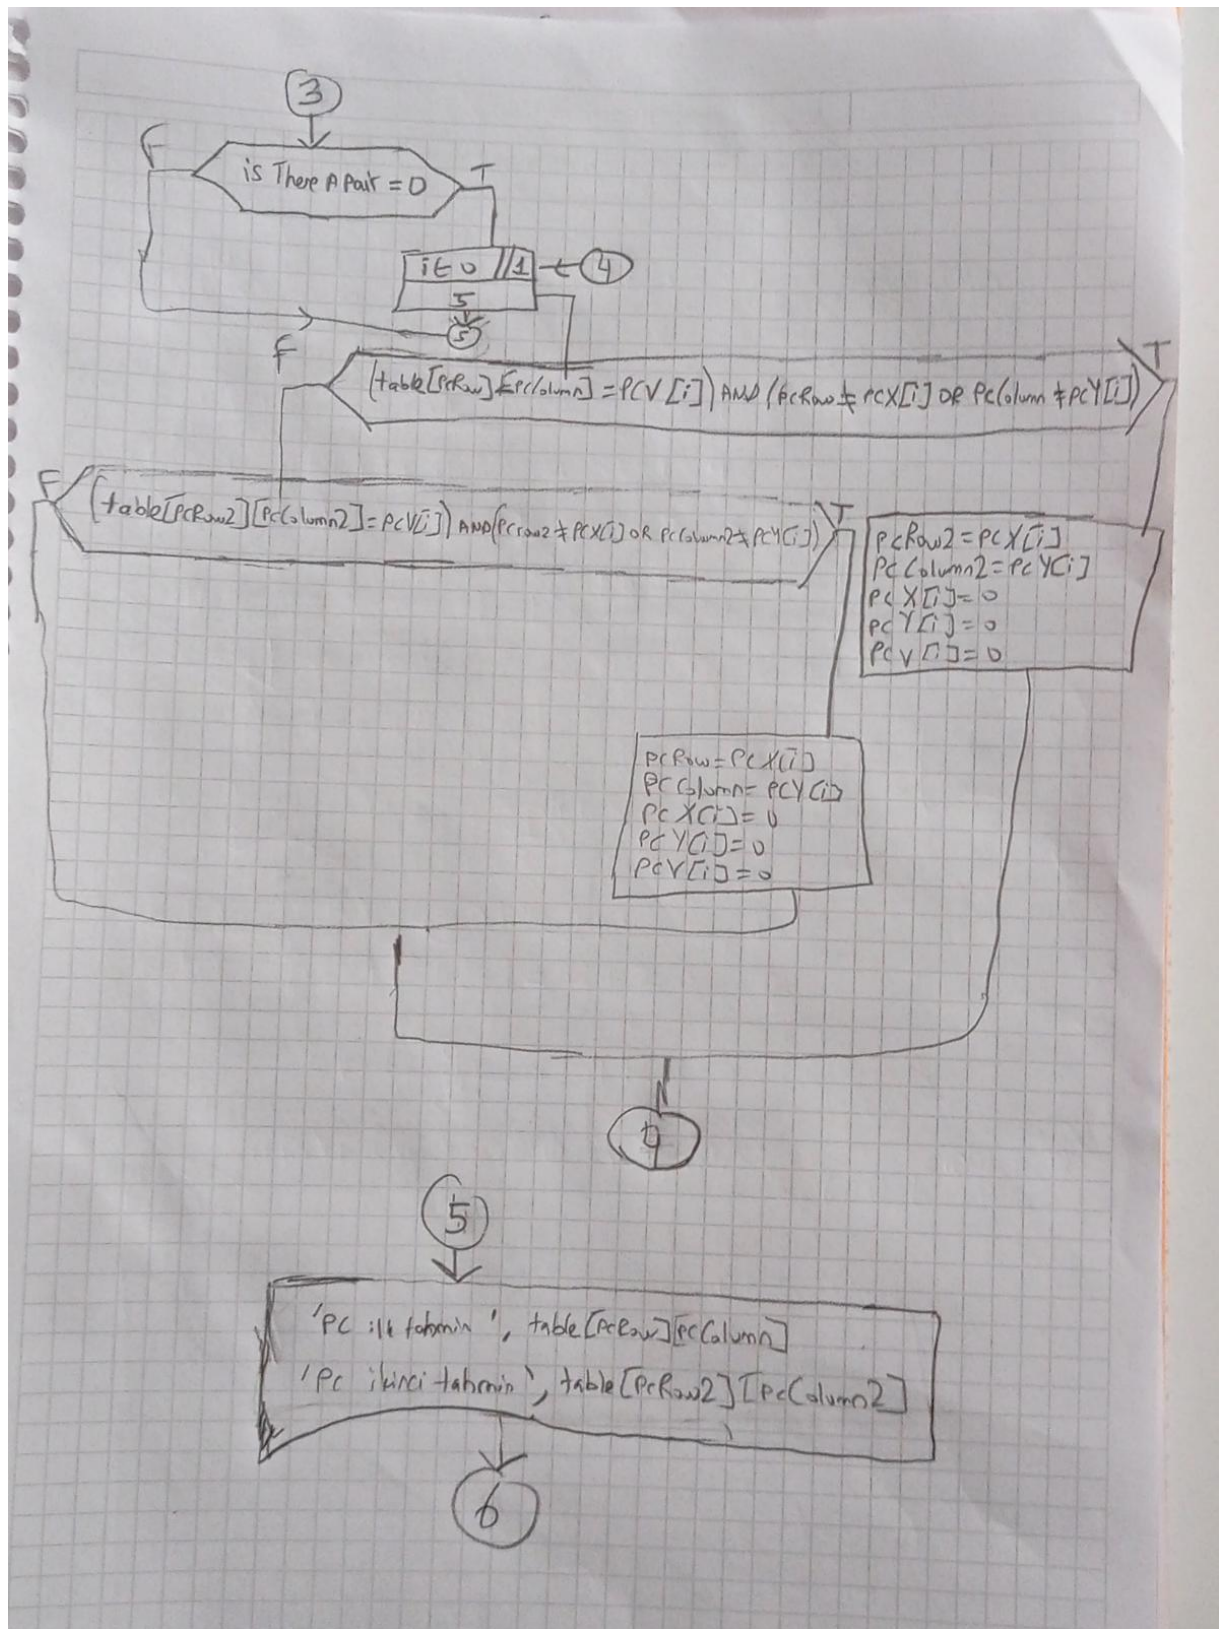 3
F
is There A Pair = 0
T
i ← 0 // 1
4
5
5
F
T
(table[PcRow][PcColumn] = PCV[i]) AND (pcRow ≠ PCX[i] OR PcColumn ≠ PCY[i])
F
T
(table[PcRow2][PcColumn2] = PCV[i]) AND (PCrow2 ≠ PCX[i] OR PcColumn2 ≠ PCY[i])
pcRow2 = PCX[i]
PcColumn2 = PCY[i]
PCX[i] = 0
PCY[i] = 0
PCV[i] = 0
pcRow = PCX[i]
PCColumn = PCY[i]
PCX[i] = 0
PCY[i] = 0
PCV[i] = 0
4
5
'PC ilk tahmin ', table[PcRow][PcColumn]
'Pc ikinci tahmin', table[PcRow2][PcColumn2]
6